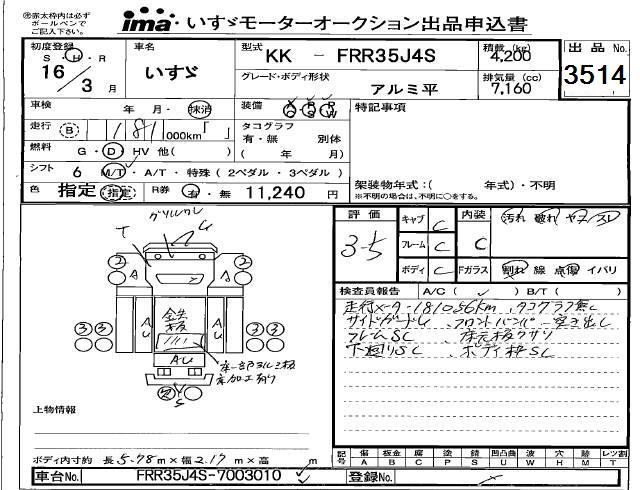 ㊟赤太枠内は必ず
ボールペンで
ご記入下さい。
ima いすゞモーターオークション出品申込書
初度登録
S・H・R
16/3月
車名
いすゞ
型式
KK － FRR35J4S
グレード・ボディ形状
アルミ平
積載 (kg)
4,200
排気量 (cc)
7,160
出品 No.
3514
車検
年 月・抹消
装備
特記事項
走行
B 181,000km「 」
タコグラフ
有・無 別体
( 年 月)
燃料
G・D・HV 他( )
シフト
6 M/T・A/T・特殊(2ペダル・3ペダル)
色
指定 指定
R券
有・無 11,240 円
架装物年式：( 年式)・不明
※不明の場合は、不明に○をする。
評価
3-5
キャブ C
フレーム C
ボディ C
内装
C
汚れ 破れ
Fガラス
割れ 線 点傷 イバリ
検査員報告 A/C( ✓ ) B/T( )
走行メーター181056km、タコグラフ無し
サイドガードU、フロントバンパー
フレームSC
下廻りSC、ボディ枠SC
T
U
2 A A 2
3 3 A U A U 3 3
鉄板
AU
S
上物情報
ボディ内寸約 長5.78m×幅2.17m×高 m
記号
傷 A
板金 B
腐 C
塗 P
錆 S
凹凸曲 U
波 W
穴 H
跡 M
レツ割 T
車台No. FRR35J4S-7003010 ✓
登録No.